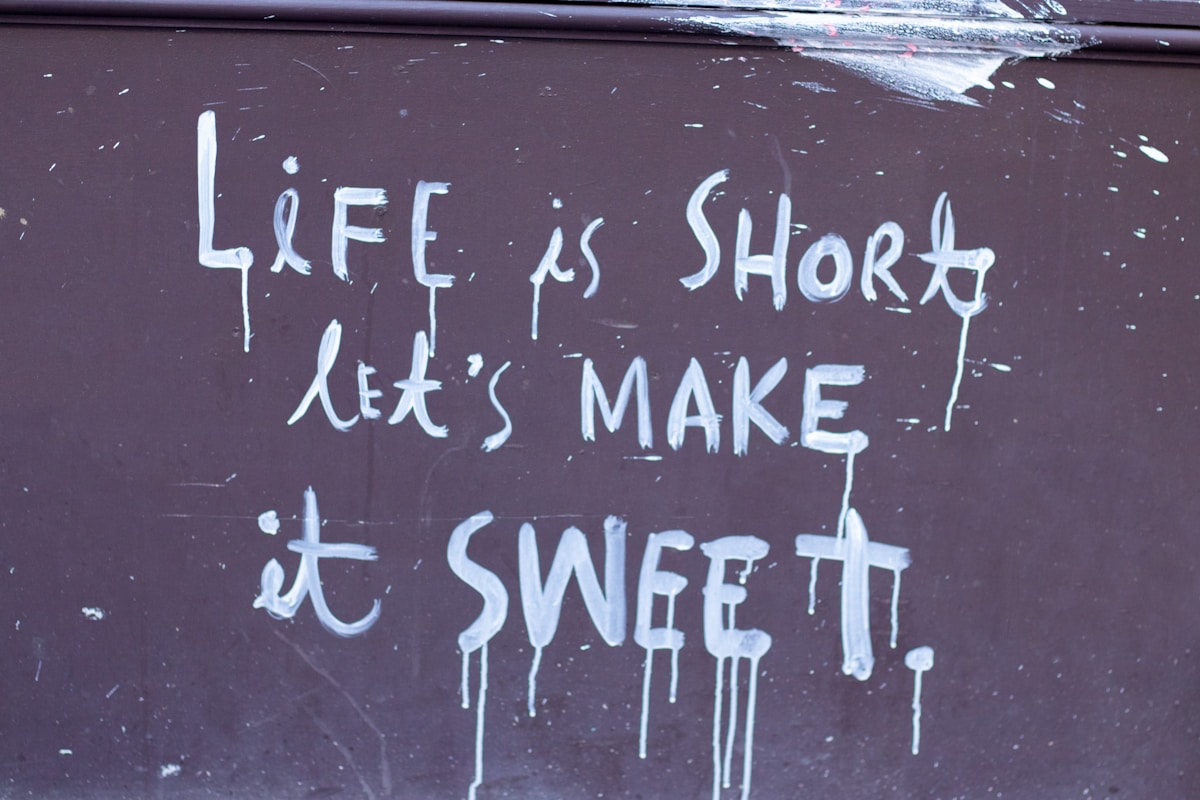 LiFE is SHORt
lEt's MAKE
it SWEET.